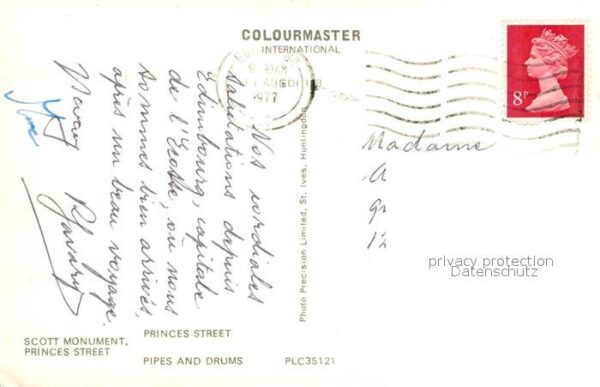 COLOURMASTER
INTERNATIONAL
1977
8P
Nos cordiales
salutations depuis
Edimbourg, capitale
de l'Ecosse, où nous
sommes bien arrivés,
après un beau voyage.
Madame
privacy protection
Datenschutz
Photo Precision Limited, St. Ives, Huntingdon
SCOTT MONUMENT,
PRINCES STREET
PRINCES STREET
PIPES AND DRUMS
PLC35121